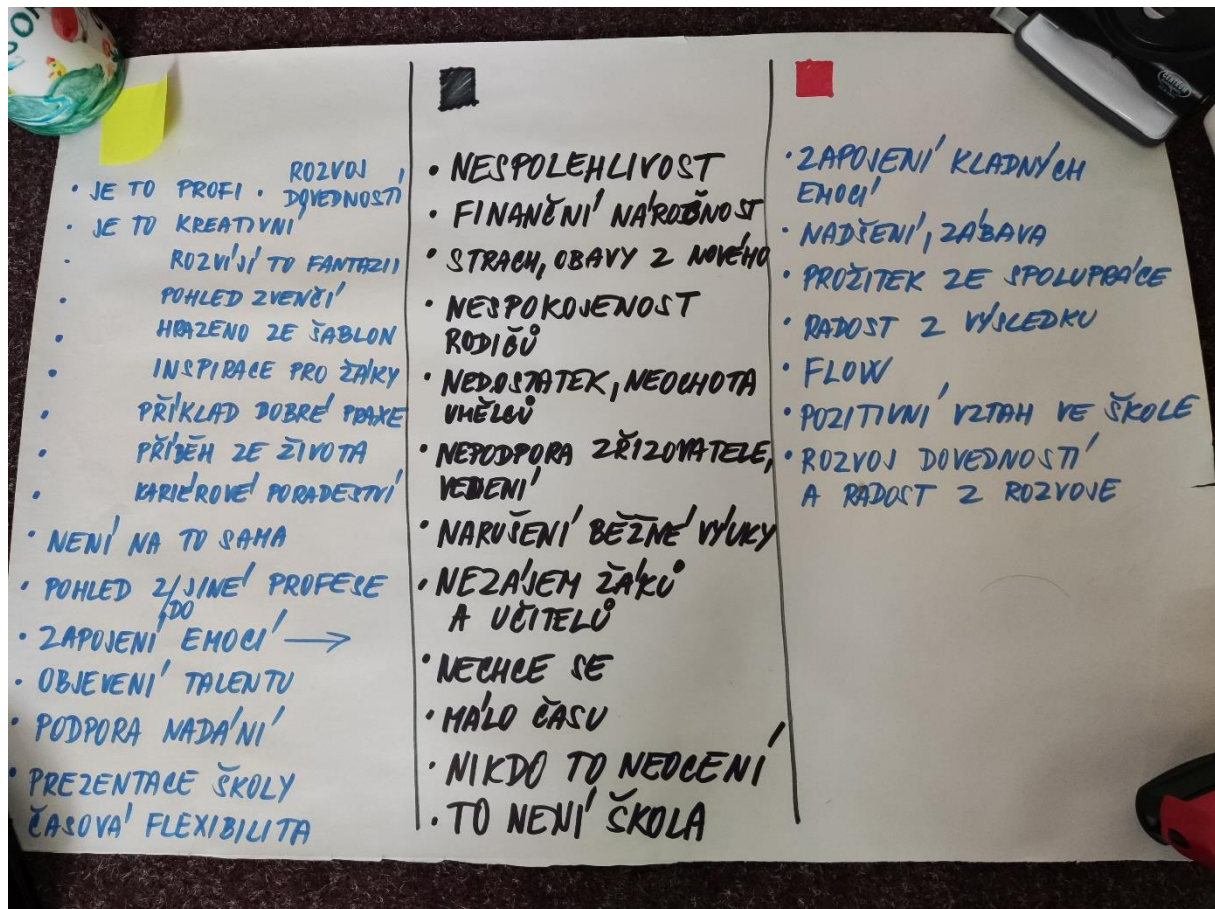 • JE TO PROFI • ROZVOJ DOVEDNOSTÍ
• JE TO KREATIVNÍ
• ROZVÍJÍ TO FANTAZII
• POHLED ZVENČÍ
• HRAZENO ZE ŠABLON
• INSPIRACE PRO ŽÁKY
• PŘÍKLAD DOBRÉ PRAXE
• PŘÍBĚH ZE ŽIVOTA
• KARIÉROVÉ PORADESTVÍ
• NENÍ NA TO SAMA
• POHLED Z/DO JINÉ PROFESE
• ZAPOJENÍ EMOCÍ →
• OBJEVENÍ TALENTU
• PODPORA NADÁNÍ
• PREZENTACE ŠKOLY
ČASOVÁ FLEXIBILITA
• NESPOLEHLIVOST
• FINANČNÍ NÁROČNOST
• STRACH, OBAVY Z NOVÉHO
• NESPOKOJENOST
RODIČŮ
• NEDOSTATEK, NEOCHOTA
UMĚLCŮ
• NEPODPORA ZŘIZOVATELE,
VEDENÍ
• NARUŠENÍ BĚŽNÉ VÝUKY
• NEZÁJEM ŽÁKŮ
A UČITELŮ
• NECHCE SE
• MÁLO ČASU
• NIKDO TO NEOCENÍ
• TO NENÍ ŠKOLA
• ZAPOJENÍ KLADNÝCH
EMOCÍ
• NADŠENÍ, ZÁBAVA
• PROŽITEK ZE SPOLUPRÁCE
• RADOST Z VÝSLEDKU
• FLOW
• POZITIVNÍ VZTAH VE ŠKOLE
• ROZVOJ DOVEDNOSTÍ
A RADOST Z ROZVOJE